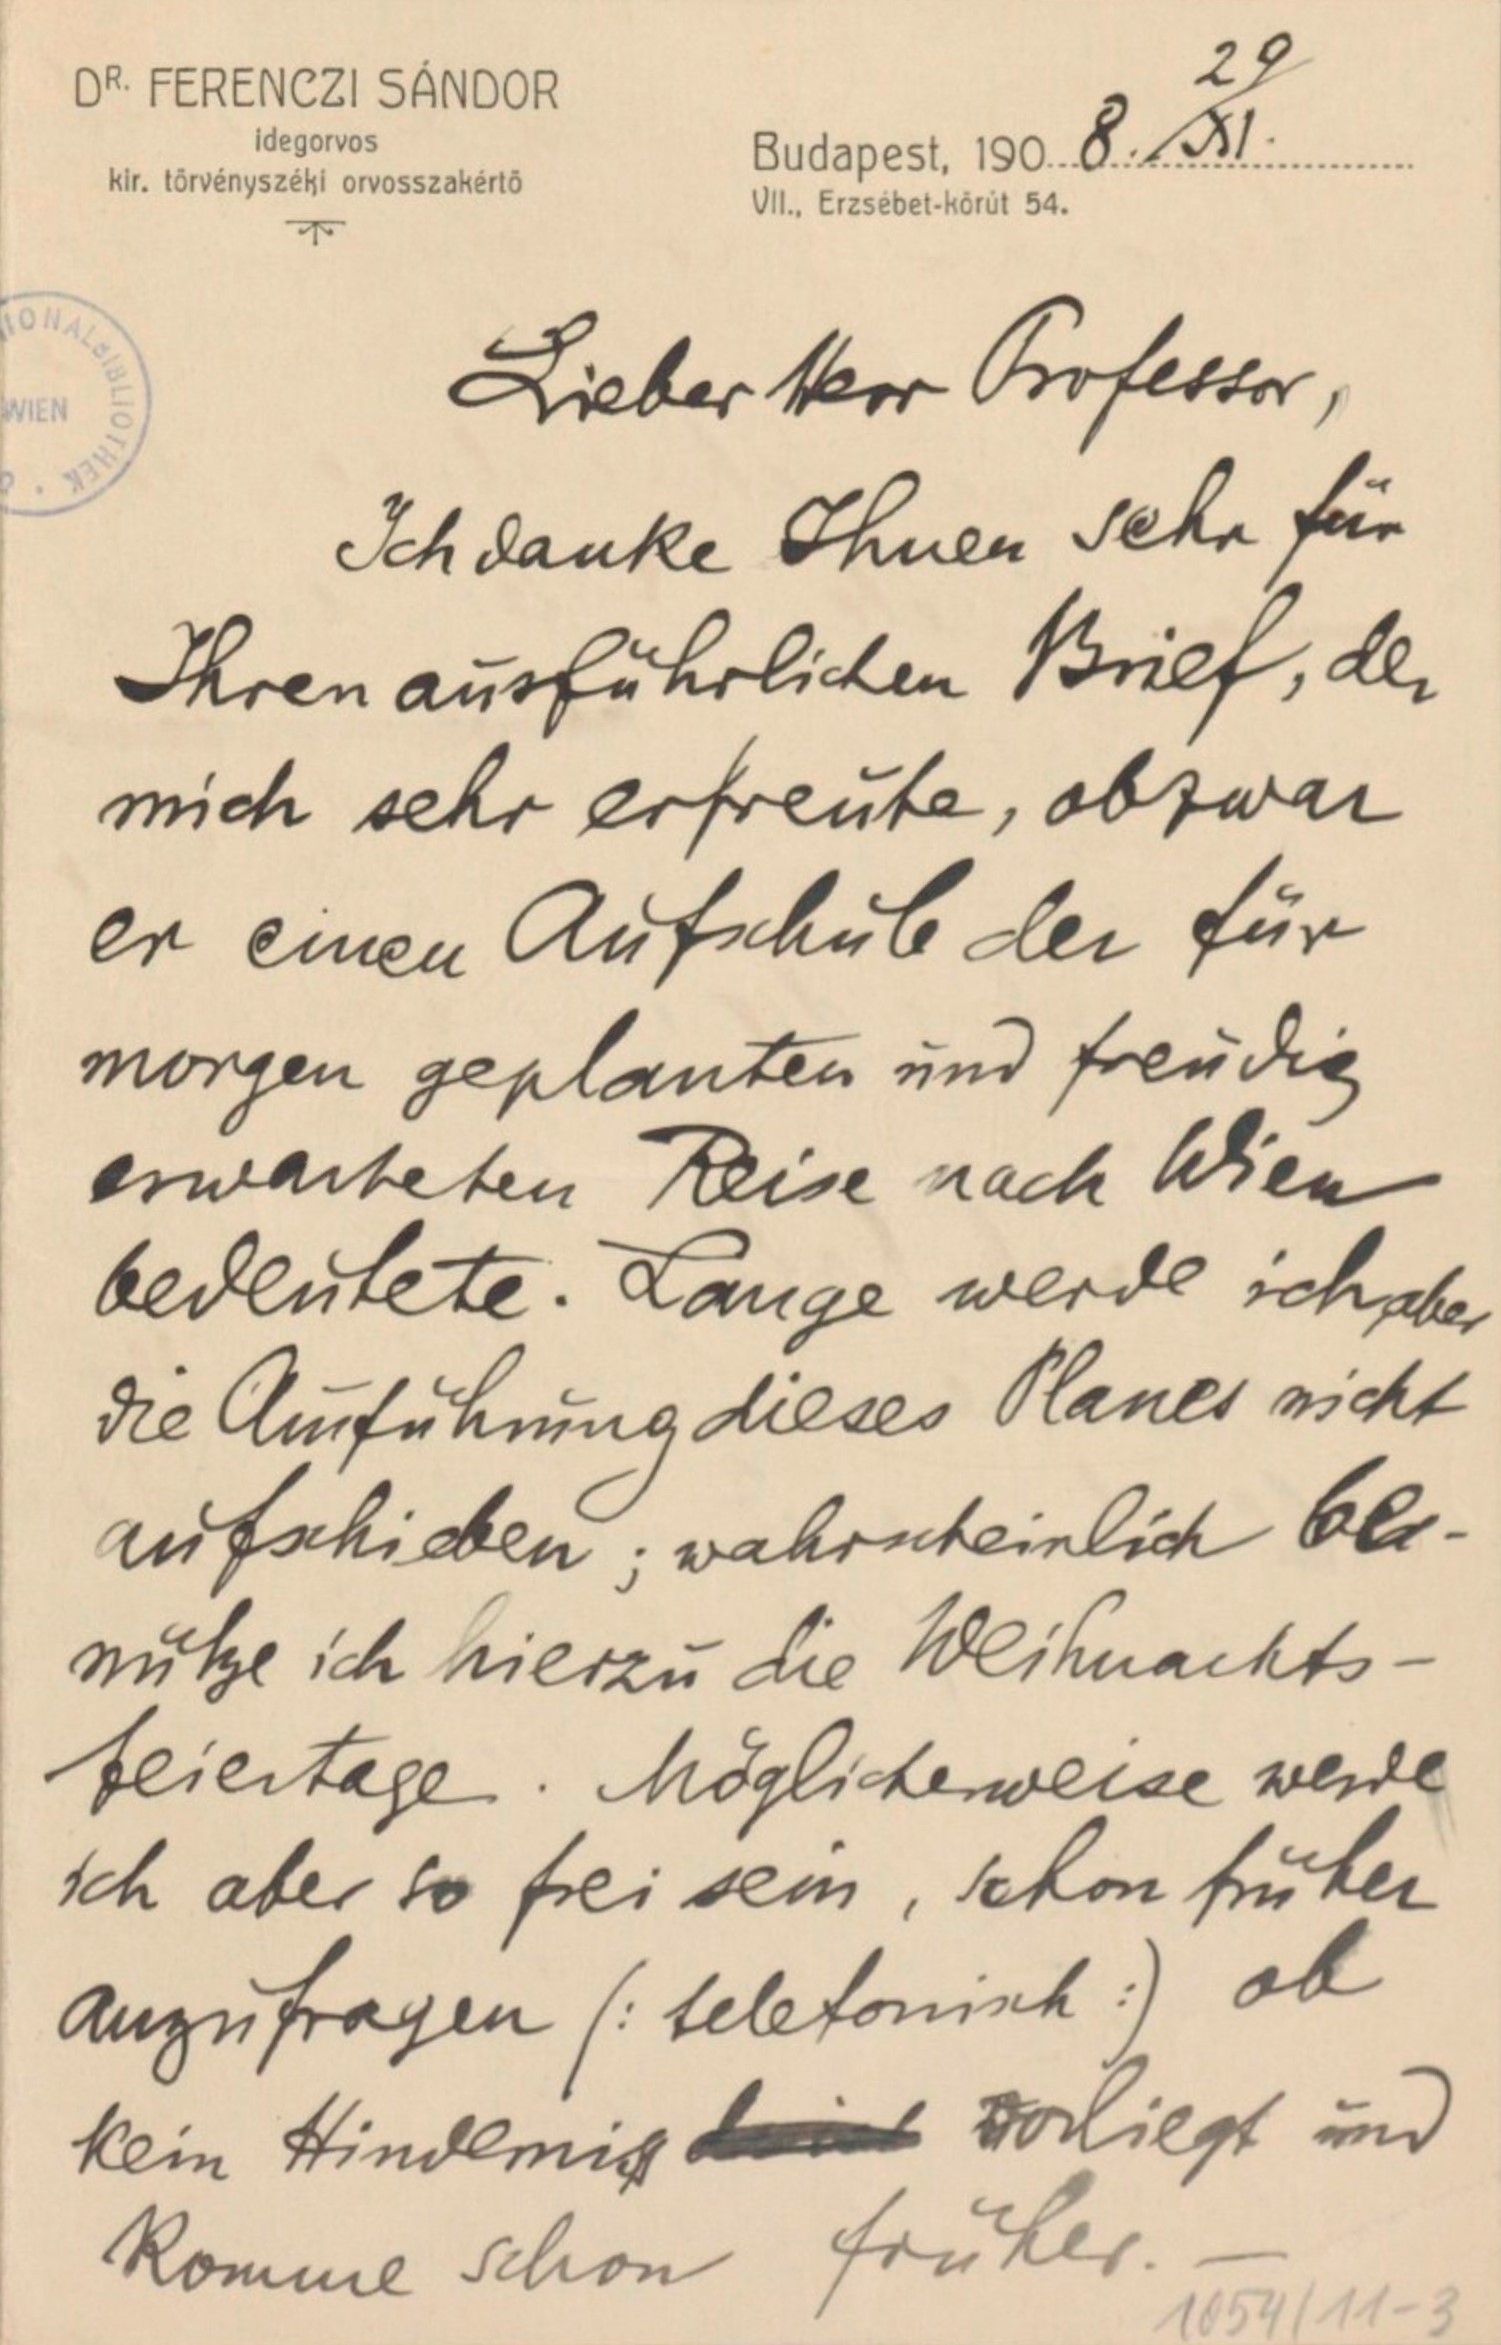 DR. FERENCZI SÁNDOR
idegorvos
kir. törvényszéki orvosszakértő
Budapest, 190 8. 29/XI.
VII., Erzsébet-körút 54.
IONALBIBLIOTHEK
WIEN
Lieber Herr Professor,
Ich danke Ihnen sehr für
Ihren ausführlichen Brief, der
mich sehr erfreute, obzwar
er einen Aufschub der für
morgen geplanten und freudig
erwarteten Reise nach Wien
bedeutete. Lange werde ich aber
die Ausführung dieses Planes nicht
aufschieben; wahrscheinlich be-
nütze ich hierzu die Weihnachts-
feiertage. Möglicherweise werde
ich aber so frei sein, schon früher
anzufragen (: telefonisch :) ob
kein Hinderniss vorliegt und
komme schon früher. —
1054/11-3